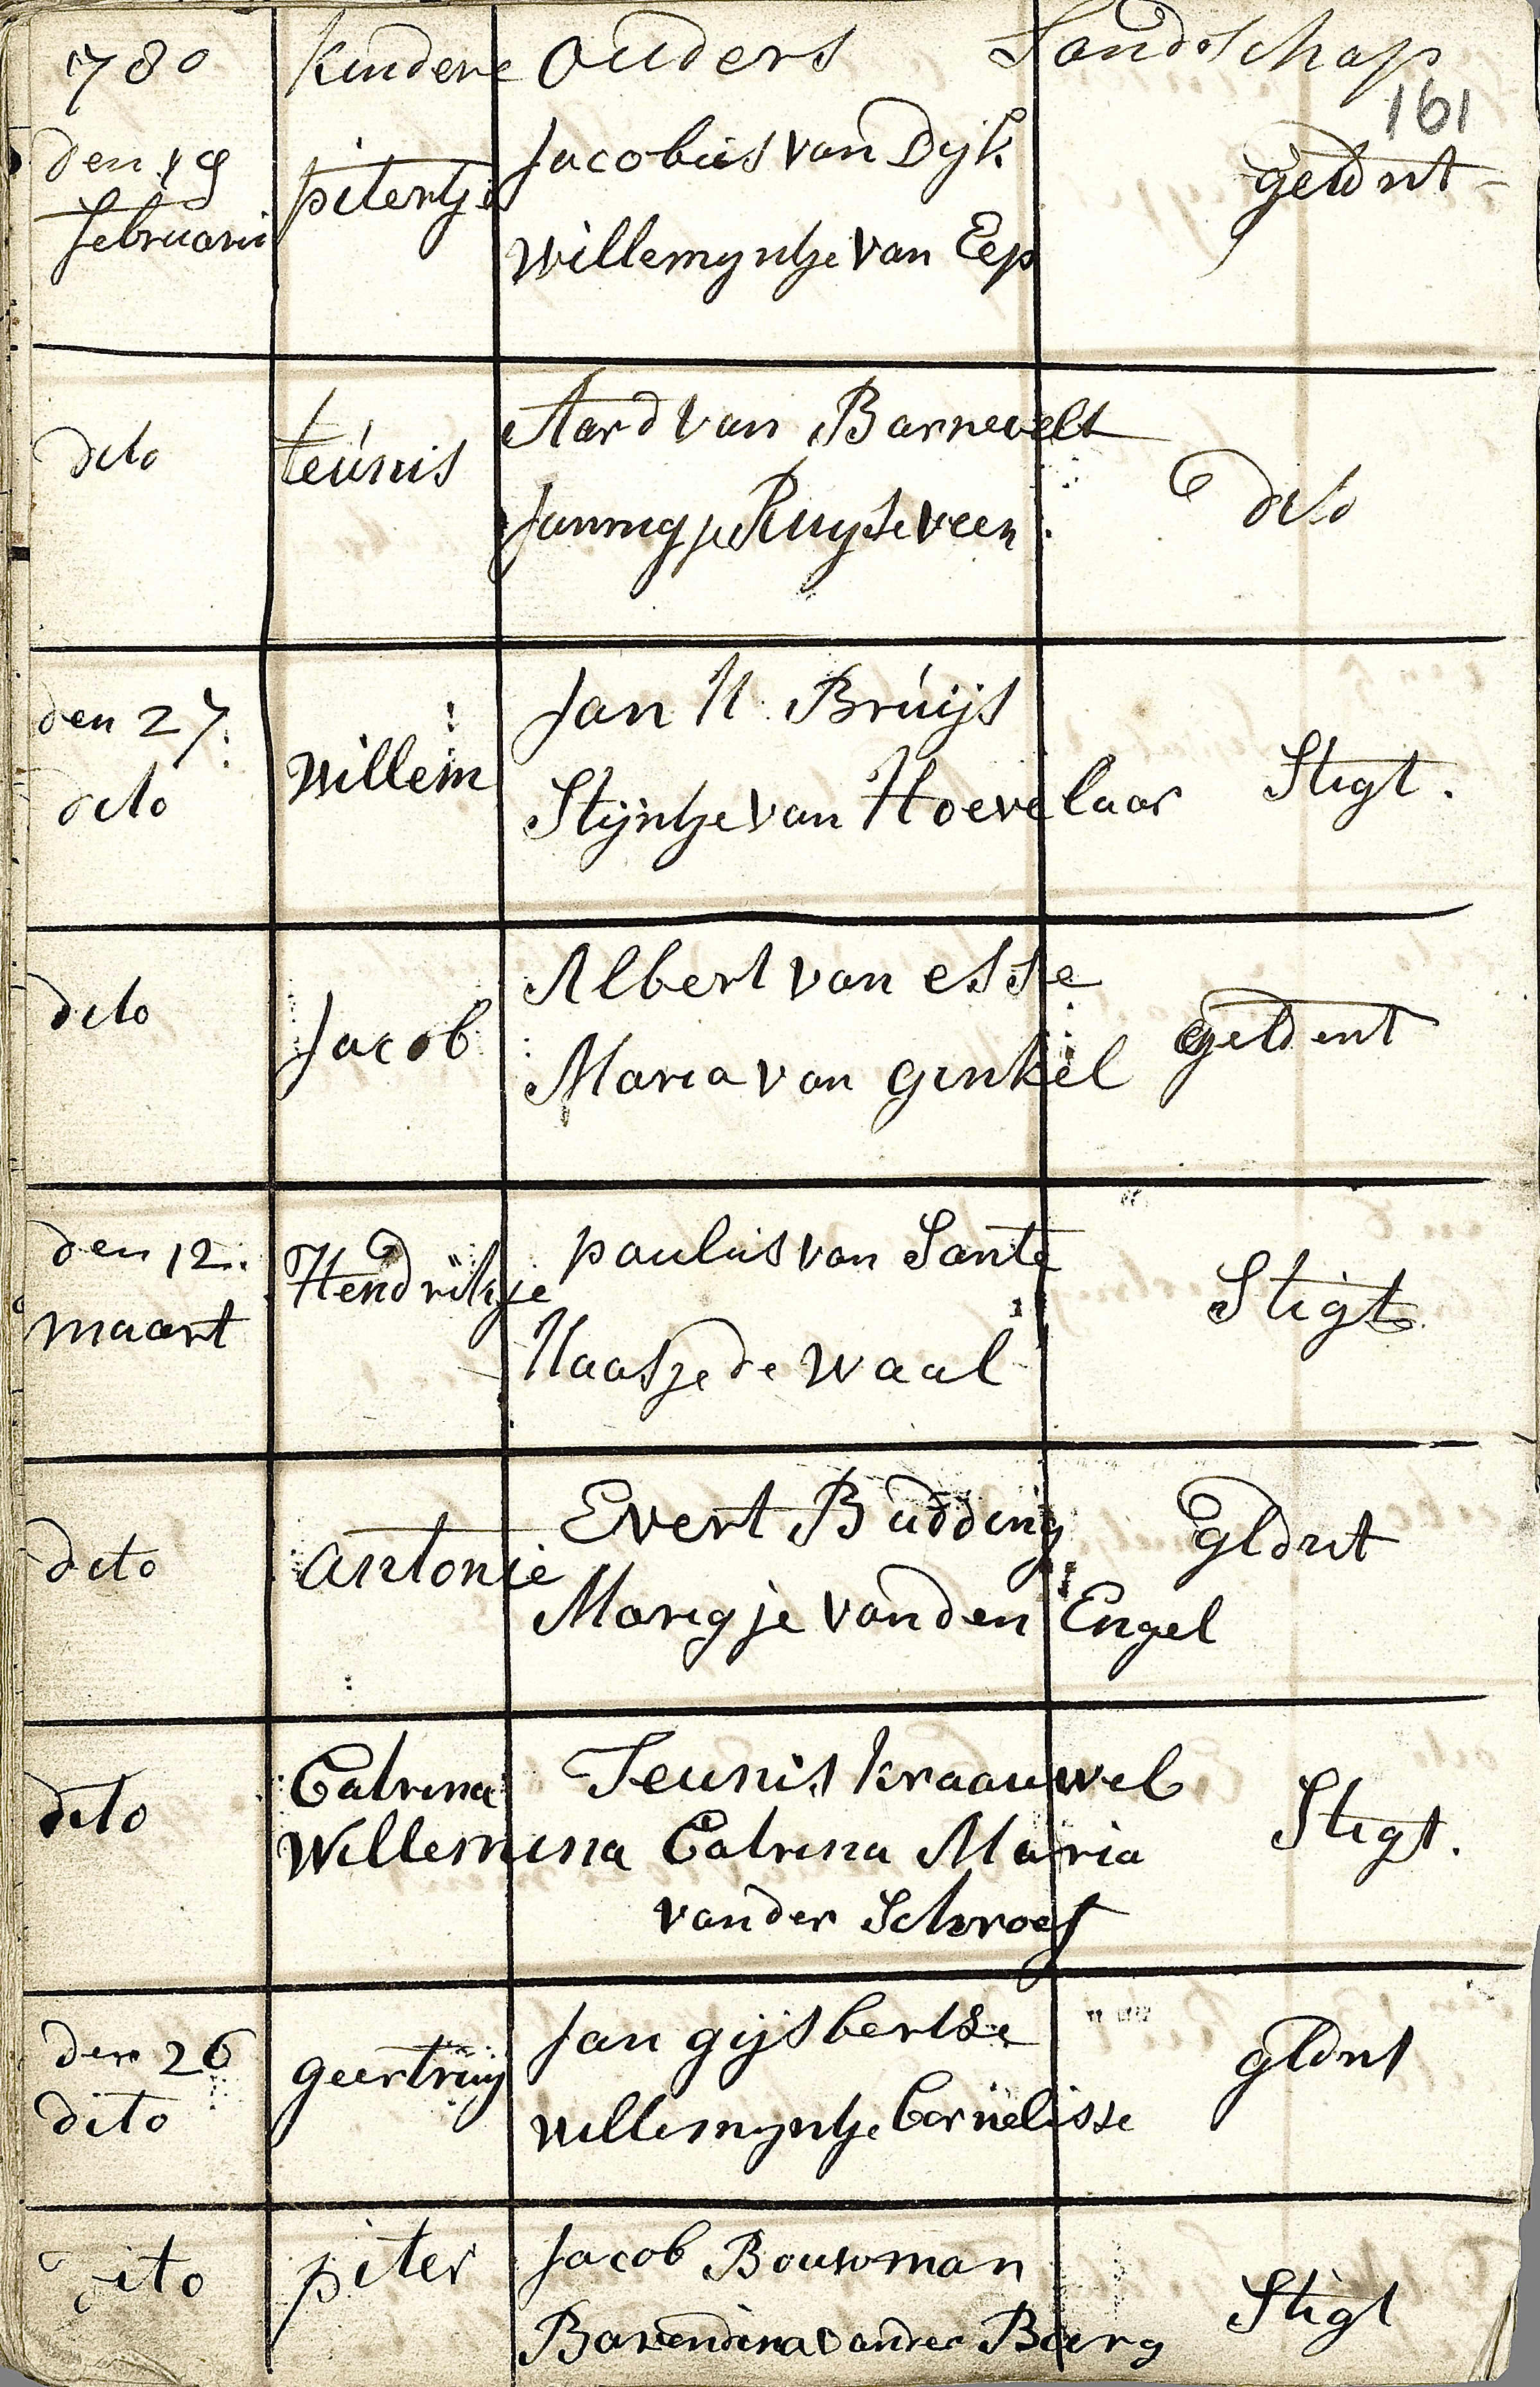 780 kindere ouders Landschap
161
den 19 pitertje Jacobus van Dyk geldrt
februarii Willemyntje van Eep
dito teunis Aard van Barnevelt dito
Jannigje Ruyteveen
den 27 Willem Jan H. Bruijs Stigt.
dito Stijntje van Hoevelaar
dito Jacob Albert van esse geldent
Maria van ginkel
den 12. Hendrikje paulus van Sante Stigt
maart Naatje de waal
dito antonie Evert Budding gldrt
Marigje van den Engel
dito Catrina Teunis kraauwel Stigt.
Willemina Catrina Maria
vander Schroef
den 26 geertruy Jan gijsbertse gldrt
dito willemyntje Cornelisse
dito piter Jacob Bouwman Stigt
Barendina vander Burg